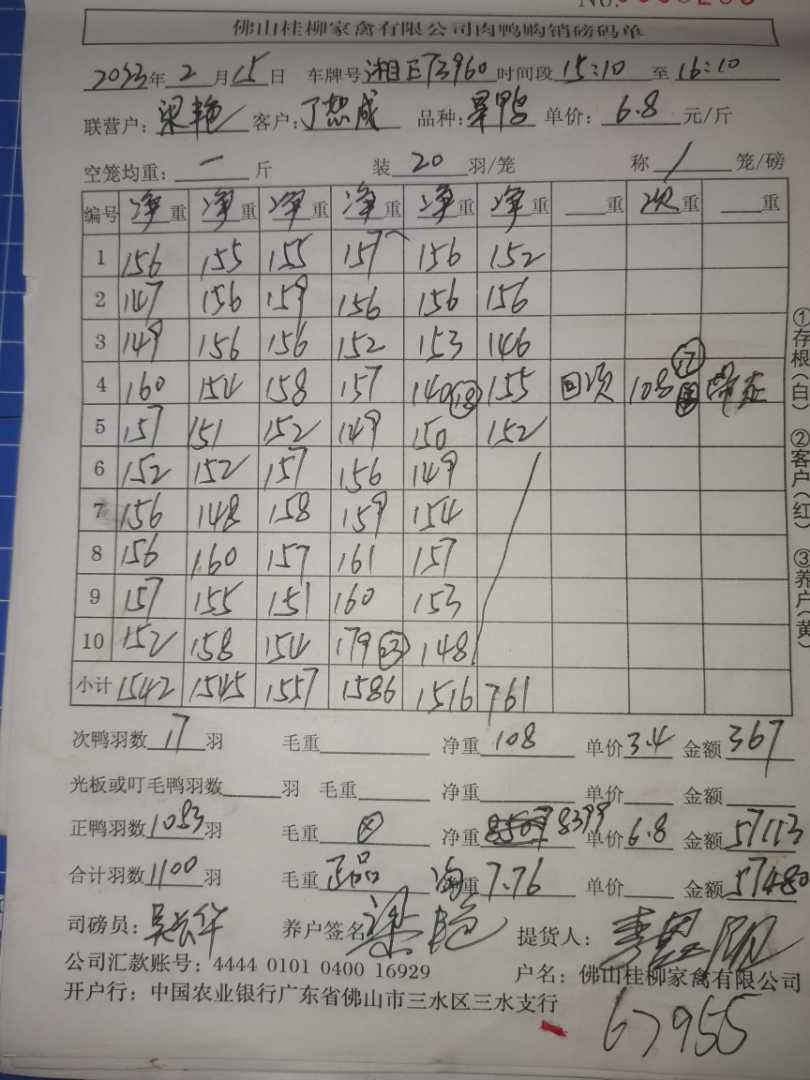 佛山桂柳家禽有限公司肉鸭购销磅码单
2023年 2 月 15 日 车牌号 湘E73960 时间段 15:10 至 16:10
联营户: 梁艳 客户: 品种: 单价: 6.8 元/斤
空笼均重: 一 斤 装 20 羽/笼 称 / 笼/磅
编号 净重 净重 净重 净重 净重 净重 重 次重 重
1 156 155 155 157 156 152
2 147 156 159 156 156 156
3 149 156 156 152 153 146
4 160 154 158 157 140 (18) 155 回次 108 (17)
5 157 151 152 149 150 152
6 152 152 157 156 149
7 156 148 158 159 154
8 156 160 157 161 157
9 157 155 151 160 153
10 152 158 154 179 (23) 148
小计 1542 1545 1557 1586 1516 761
次鸭羽数 17 羽 毛重 净重 108 单价 3.4 金额 367
光板或叮毛鸭羽数 羽 毛重 净重 单价 金额
正鸭羽数 1083 羽 毛重 净重 8399 单价 6.8 金额 57113
合计羽数 1100 羽 毛重 正品 重 7.76 单价 金额 57480
司磅员: 养户签名 梁艳 提货人:
公司汇款账号: 4444 0101 0400 16929 户名: 佛山桂柳家禽有限公司
开户行: 中国农业银行广东省佛山市三水区三水支行
67955
①存根(白) ②客户(红) ③养户(黄)